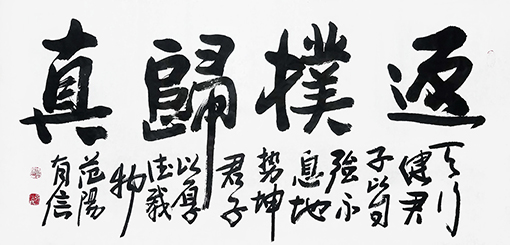 返樸歸真
天行
健君
子以自
強不
息地
勢坤
君子
以厚
德載
物
范陽
有信